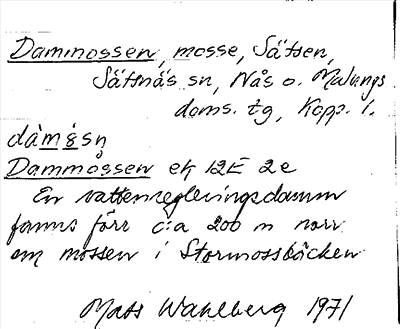 Dammossen, mosse, Sätsen,
Säfsnäs sn, Nås o. Malungs
doms. tg, Kopp. l.
Dammossen ek 12E 2e
En vattenregleringsdamm
fanns förr c:a 200 m norr
om mossen i Stormossbäcken
Mats Wahlberg 1971